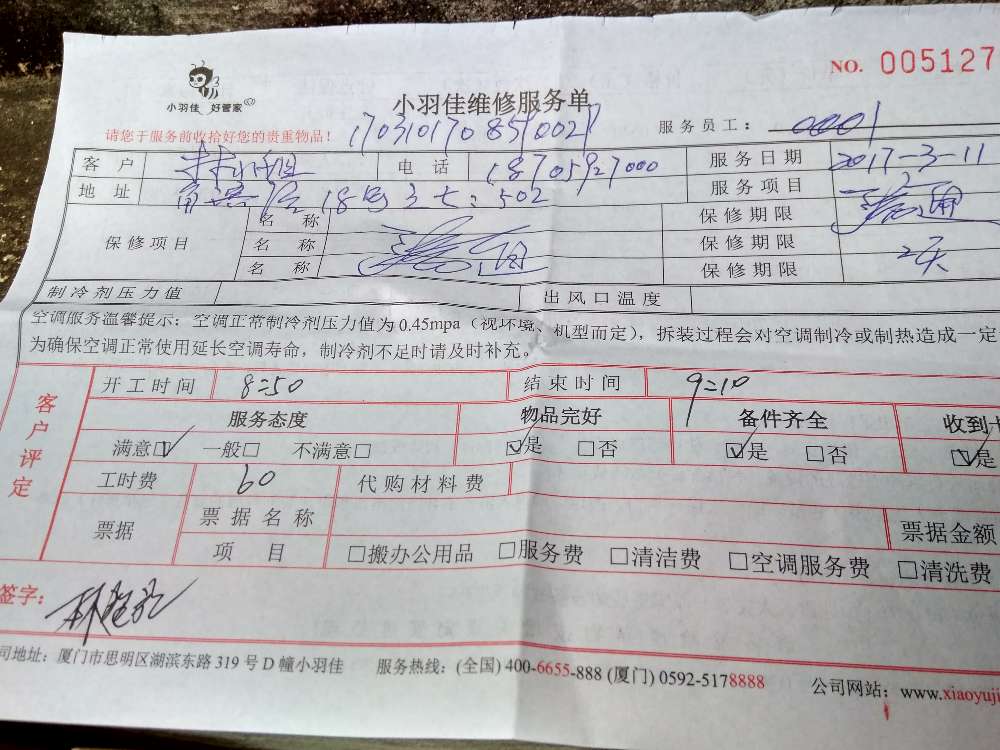 NO. 005127
小羽佳 好管家
小羽佳维修服务单
请您于服务前收拾好您的贵重物品!
1703101708510021
服务员工: 0001
客户 林小姐 电话 18705927000 服务日期 2017-3-11
地址 18号之七:502 服务项目
保修项目 名称 保修期限
名称 保修期限
名称 保修期限 2天
制冷剂压力值 出风口温度
空调服务温馨提示:空调正常制冷剂压力值为 0.45mpa(视环境、机型而定),拆装过程会对空调制冷或制热造成一定
为确保空调正常使用延长空调寿命,制冷剂不足时请及时补充。
客户评定
开工时间 8:50 结束时间 9:10
服务态度 物品完好 备件齐全 收到
满意☑ 一般□ 不满意□ ☑是 □否 ☑是 □否 ☑是
工时费 60 代购材料费
票据 票据名称 票据金额
项目 □搬办公用品 □服务费 □清洁费 □空调服务费 □清洗费
签字:
司地址:厦门市思明区湖滨东路 319 号 D 幢小羽佳 服务热线:(全国) 400-6655-888 (厦门) 0592-5178888 公司网站:www.xiaoyuji